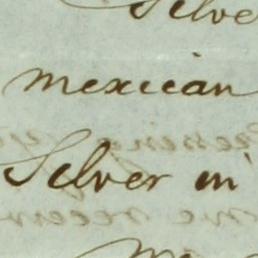 Silve
mexican
Silver in